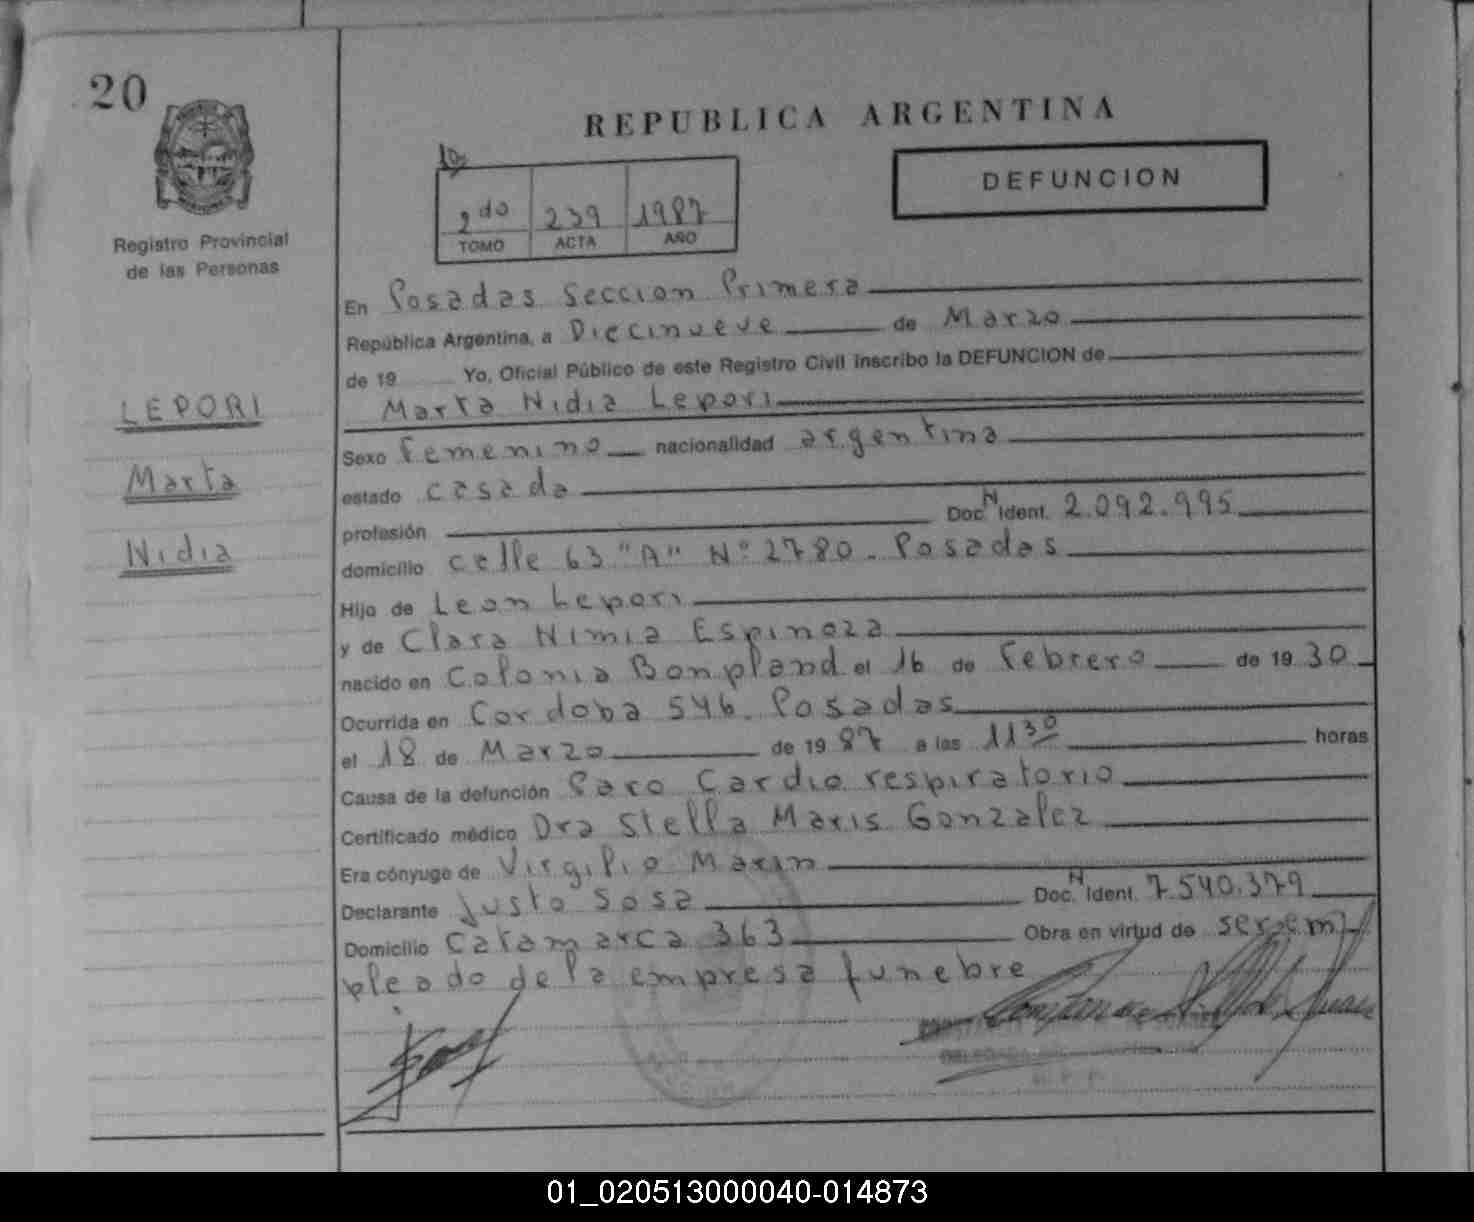 20
REPUBLICA ARGENTINA
DEFUNCION
2do 239 1987
TOMO ACTA AÑO
Registro Provincial
de las Personas
LEPORI
Marta
Nidia
En Posadas Seccion Primera
República Argentina, a Diecinueve de Marzo
de 19 Yo, Oficial Público de este Registro Civil inscribo la DEFUNCION de
Marta Nidia Lepori
Sexo femenino nacionalidad argentina
estado casada
profesión Doc. N Ident. 2.092.995
domicilio calle 63 "A" Nº 2780. Posadas
Hijo de Leon Lepori
y de Clara Nimia Espinoza
nacido en Colonia Bonpland el 16 de Febrero de 19 30
Ocurrida en Cordoba 546. Posadas
el 18 de Marzo de 19 87 a las 11 30 horas
Causa de la defunción Paro Cardio respiratorio
Certificado médico Dra Stella Maris Gonzalez
Era cónyuge de Virgilio Marin
Declarante Justo Sosa Doc. N Ident. 7.540.379
Domicilio Catamarca 363 Obra en virtud de ser em
pleado de la empresa funebre
01_020513000040-014873